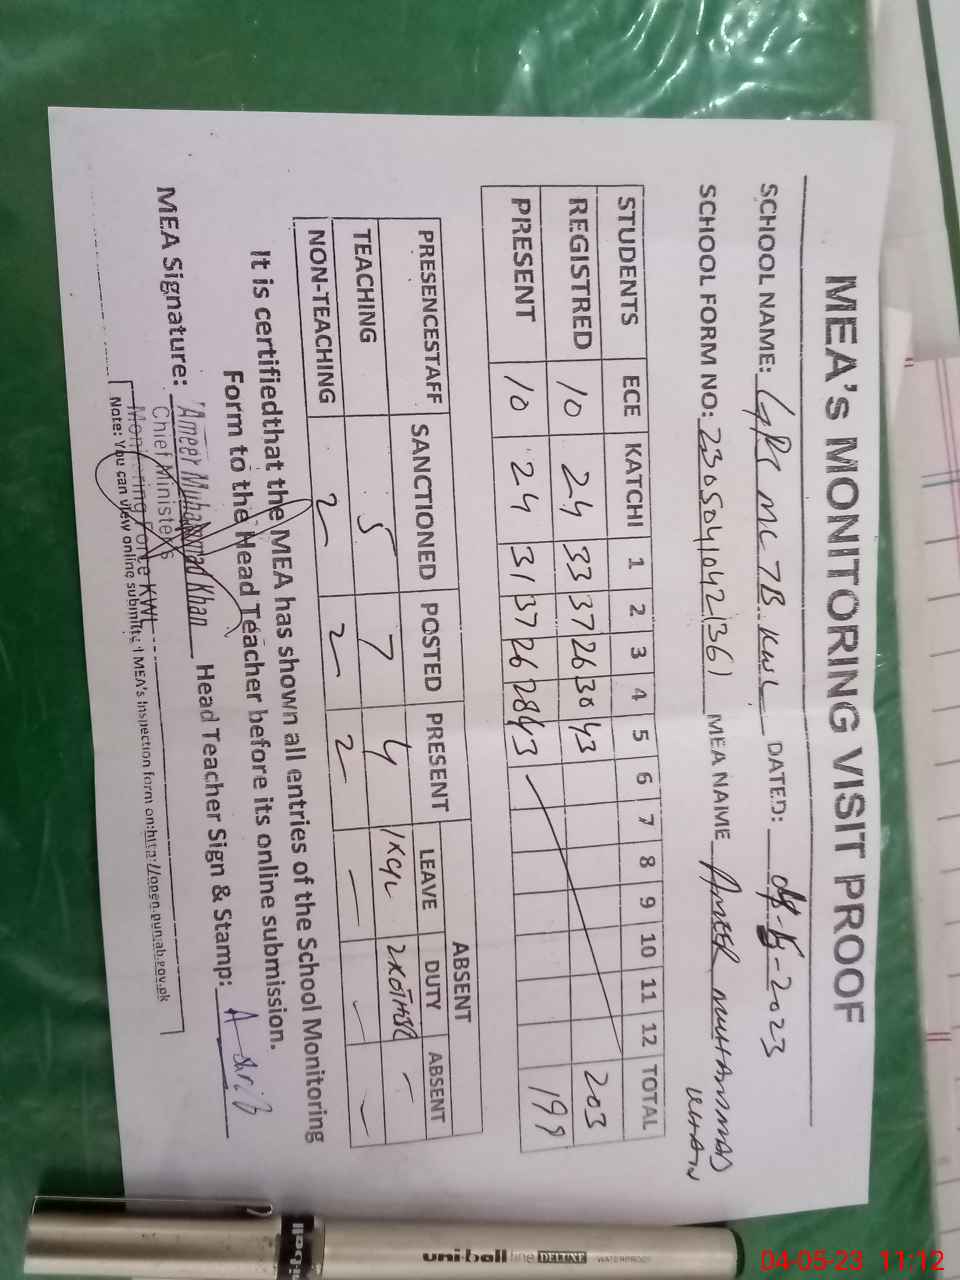 MEA's MONITORING VISIT PROOF
SCHOOL NAME: GPS MC 7B KWL DATED: 04-5-2023
SCHOOL FORM NO: 23050410421361 MEA NAME AMEER MUHAMMAD KHAN
STUDENTS ECE KATCHI 1 2 3 4 5 6 7 8 9 10 11 12 TOTAL
REGISTRED 10 24 33 37 26 30 43 203
PRESENT 10 24 31 37 26 28 43 199
PRESENCESTAFF SANCTIONED POSTED PRESENT ABSENT
LEAVE DUTY ABSENT
TEACHING 5 7 4 1 2 –
NON-TEACHING 2 2 2 – – –
It is certifiedthat the MEA has shown all entries of the School Monitoring
Form to the Head Teacher before its online submission.
MEA Signature: Ameer Muhammad Khan Head Teacher Sign & Stamp:
Chief Minister's
Monitoring Force KWL
Note: You can view online submitted MEA's Inspection form on:http://open.punjab.gov.pk
uni-ball fine DELUXE WATERPROOF
04-05-23 11:12